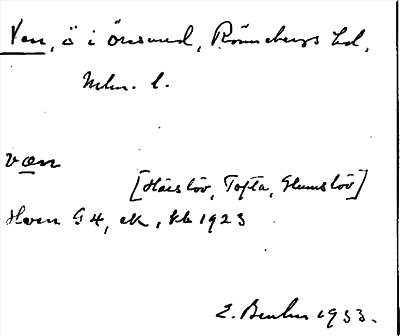 Ven, ö i Öresund, Rönnebergs hd,
Mlm. l.
væn
[Härslöv, Tofta, Glumslöv]
Hven G 4, ek, kb 1923
E. 1933.